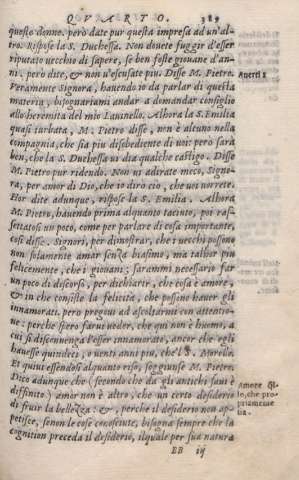 QVARTO. 389
queste donne. però date pur questa impresa ad un'al-
tro. Rispose la S. Duchessa. Non douete fuggir d'esser
riputato uecchio di sapere, se ben foste giouane d'an-
ni. però dite, & non u'escusate piu. Disse M. Pietro.
Veramente Signora, hauendo io da parlar di questa
materia, bisognariami andar a domandar consiglio
allo heremita del mio Lauinello. Alhora la S. Emilia
quasi turbata, M. Pietro disse, non è alcuno nella
compagnia, che sia piu disobediente di uoi: però sarà
ben, che la S. Duchessa ui dia qualche castigo. Disse
M. Pietro pur ridendo. Non ui adirate meco, Signo-
ra, per amor di Dio, che io dirò ciò, che uoi uorrete.
Hor dite adunque, rispose la S. Emilia. Alhora
M. Pietro, hauendo prima alquanto tacciuto, poi ras-
settatosi un poco, come per parlare di cosa importante,
così disse. Signori, per dimostrar, che i uecchi possono
non solamente amar senza biasimo, ma talhor piu
felicemente, che i giouani; sarammi necessario far
un poco di discorso, per dichiarir, che cosa è amore,
& in che consiste la felicità, che possono hauer gli
innamorati. però pregoui ad ascoltarmi con attentio-
ne: perche spero farui ueder, che qui non è huomo, a
cui si disconuenga l'esser innamorato, ancor che egli
hauesse quindeci, o uenti anni piu, che'l S. Morello.
Et quiui essendosi alquanto riso, soggiunse M. Pietro.
Dico adunque che (secondo che da gli antichi saui è
diffinito) amor non è altro, che un certo desiderio
di fruir la bellezza: &, perche il desiderio non ap-
petisce, senon le cose conosciute, bisogna sempre che la
cognition preceda il desiderio, il quale per sua natura
BB iij
Amore
propriamente